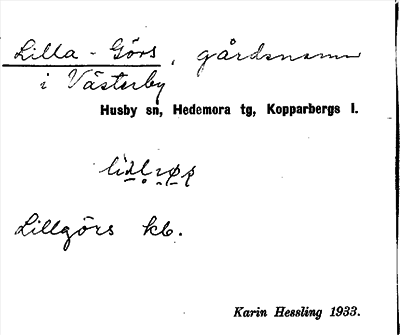 Lilla-Görs, gårdsnamn
i Västerby
Husby sn, Hedemora tg, Kopparbergs l.
Lillgörs kb.
Karin Hessling 1933.